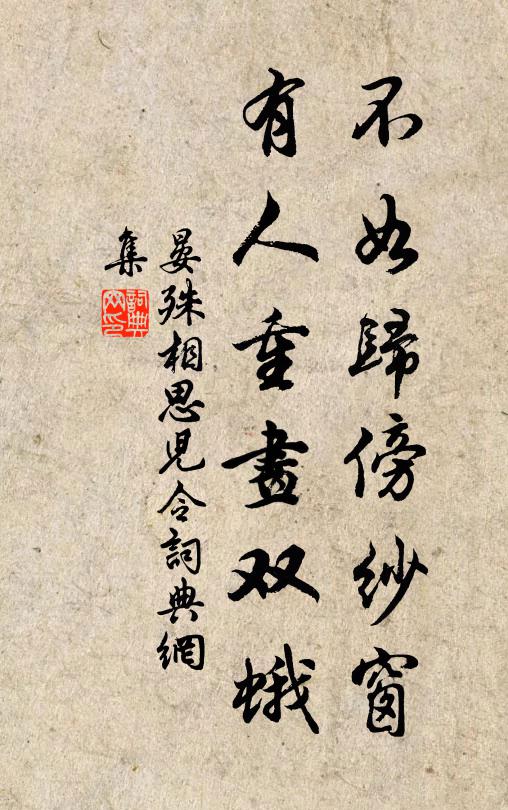 不如歸傍紗窗
有人重畫双蛾
晏殊相思児令詞典網
集
詞典
网印